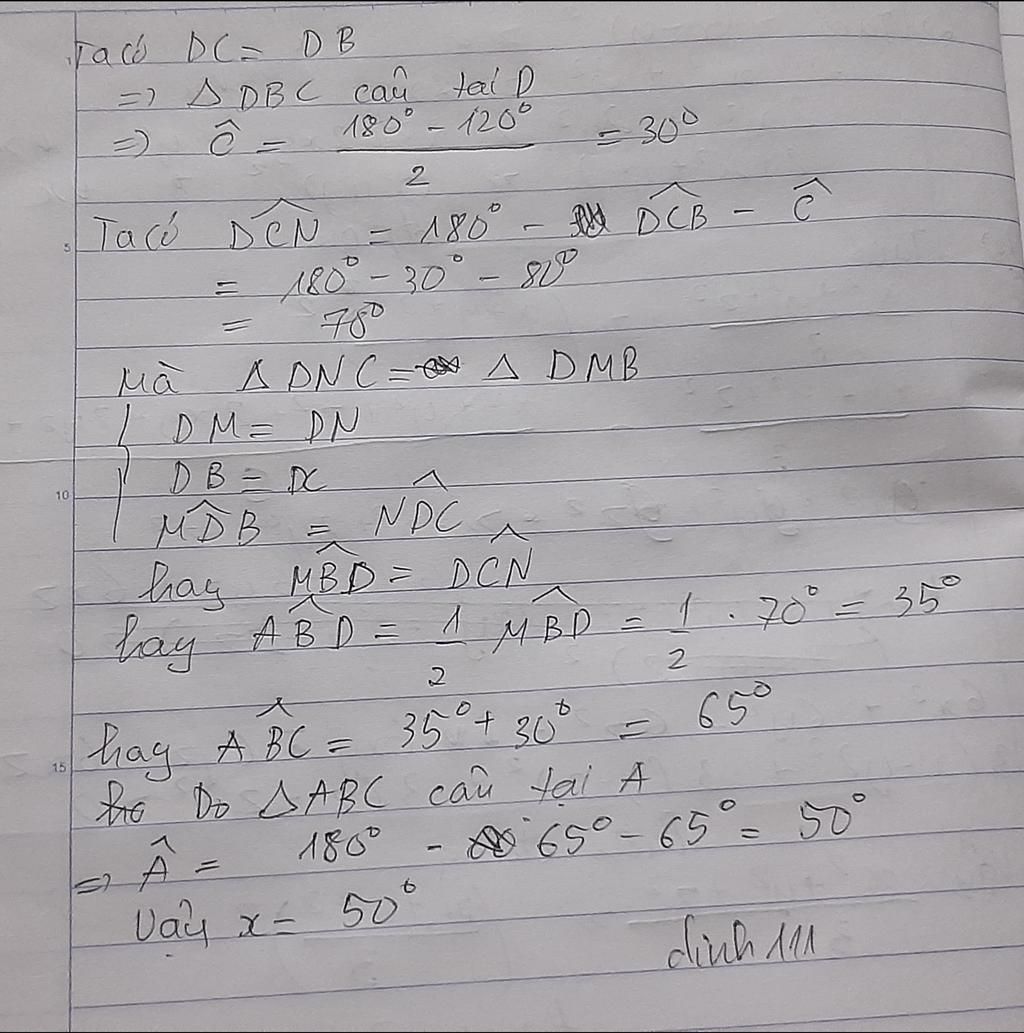 Ta có DC = DB
=> Δ DBC cân tại D
=> Ĉ = (180° - 120°)/2 = 30°
Ta có DCN^ = 180° - DCB^ - Ĉ
= 180° - 30° - 80°
= 70°
Mà Δ DNC = Δ DMB
{ DM = DN
DB = DC
MDB^ = NDC^
hay MBD^ = DCN^
hay ABD^ = 1/2 MBD^ = 1/2 . 70° = 35°
hay ABC^ = 35° + 30° = 65°
Do Δ ABC cân tại A
=> Â = 180° - 65° - 65° = 50°
Vậy x = 50°
dinh 111